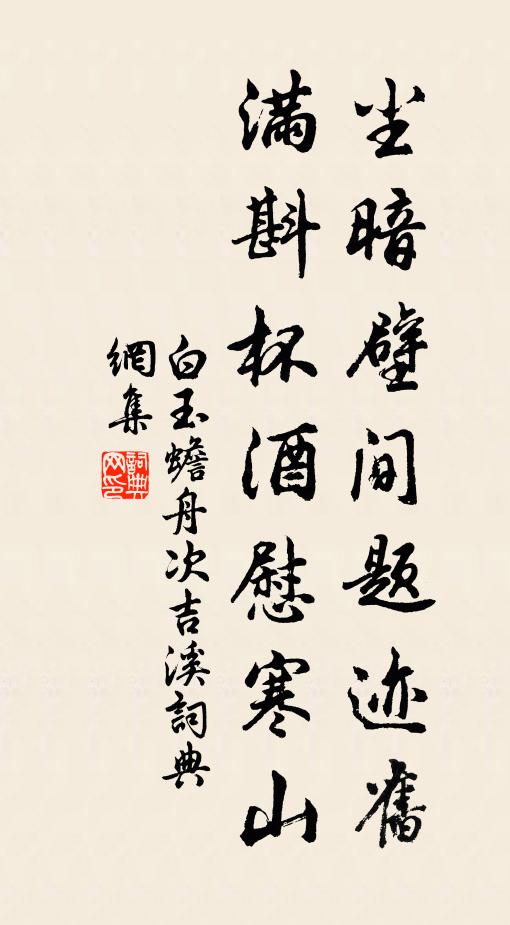 尘暗壁间题迹旧
满斟杯酒慰寒山
白玉蟾舟次吉溪詞典
網集
詞典網印